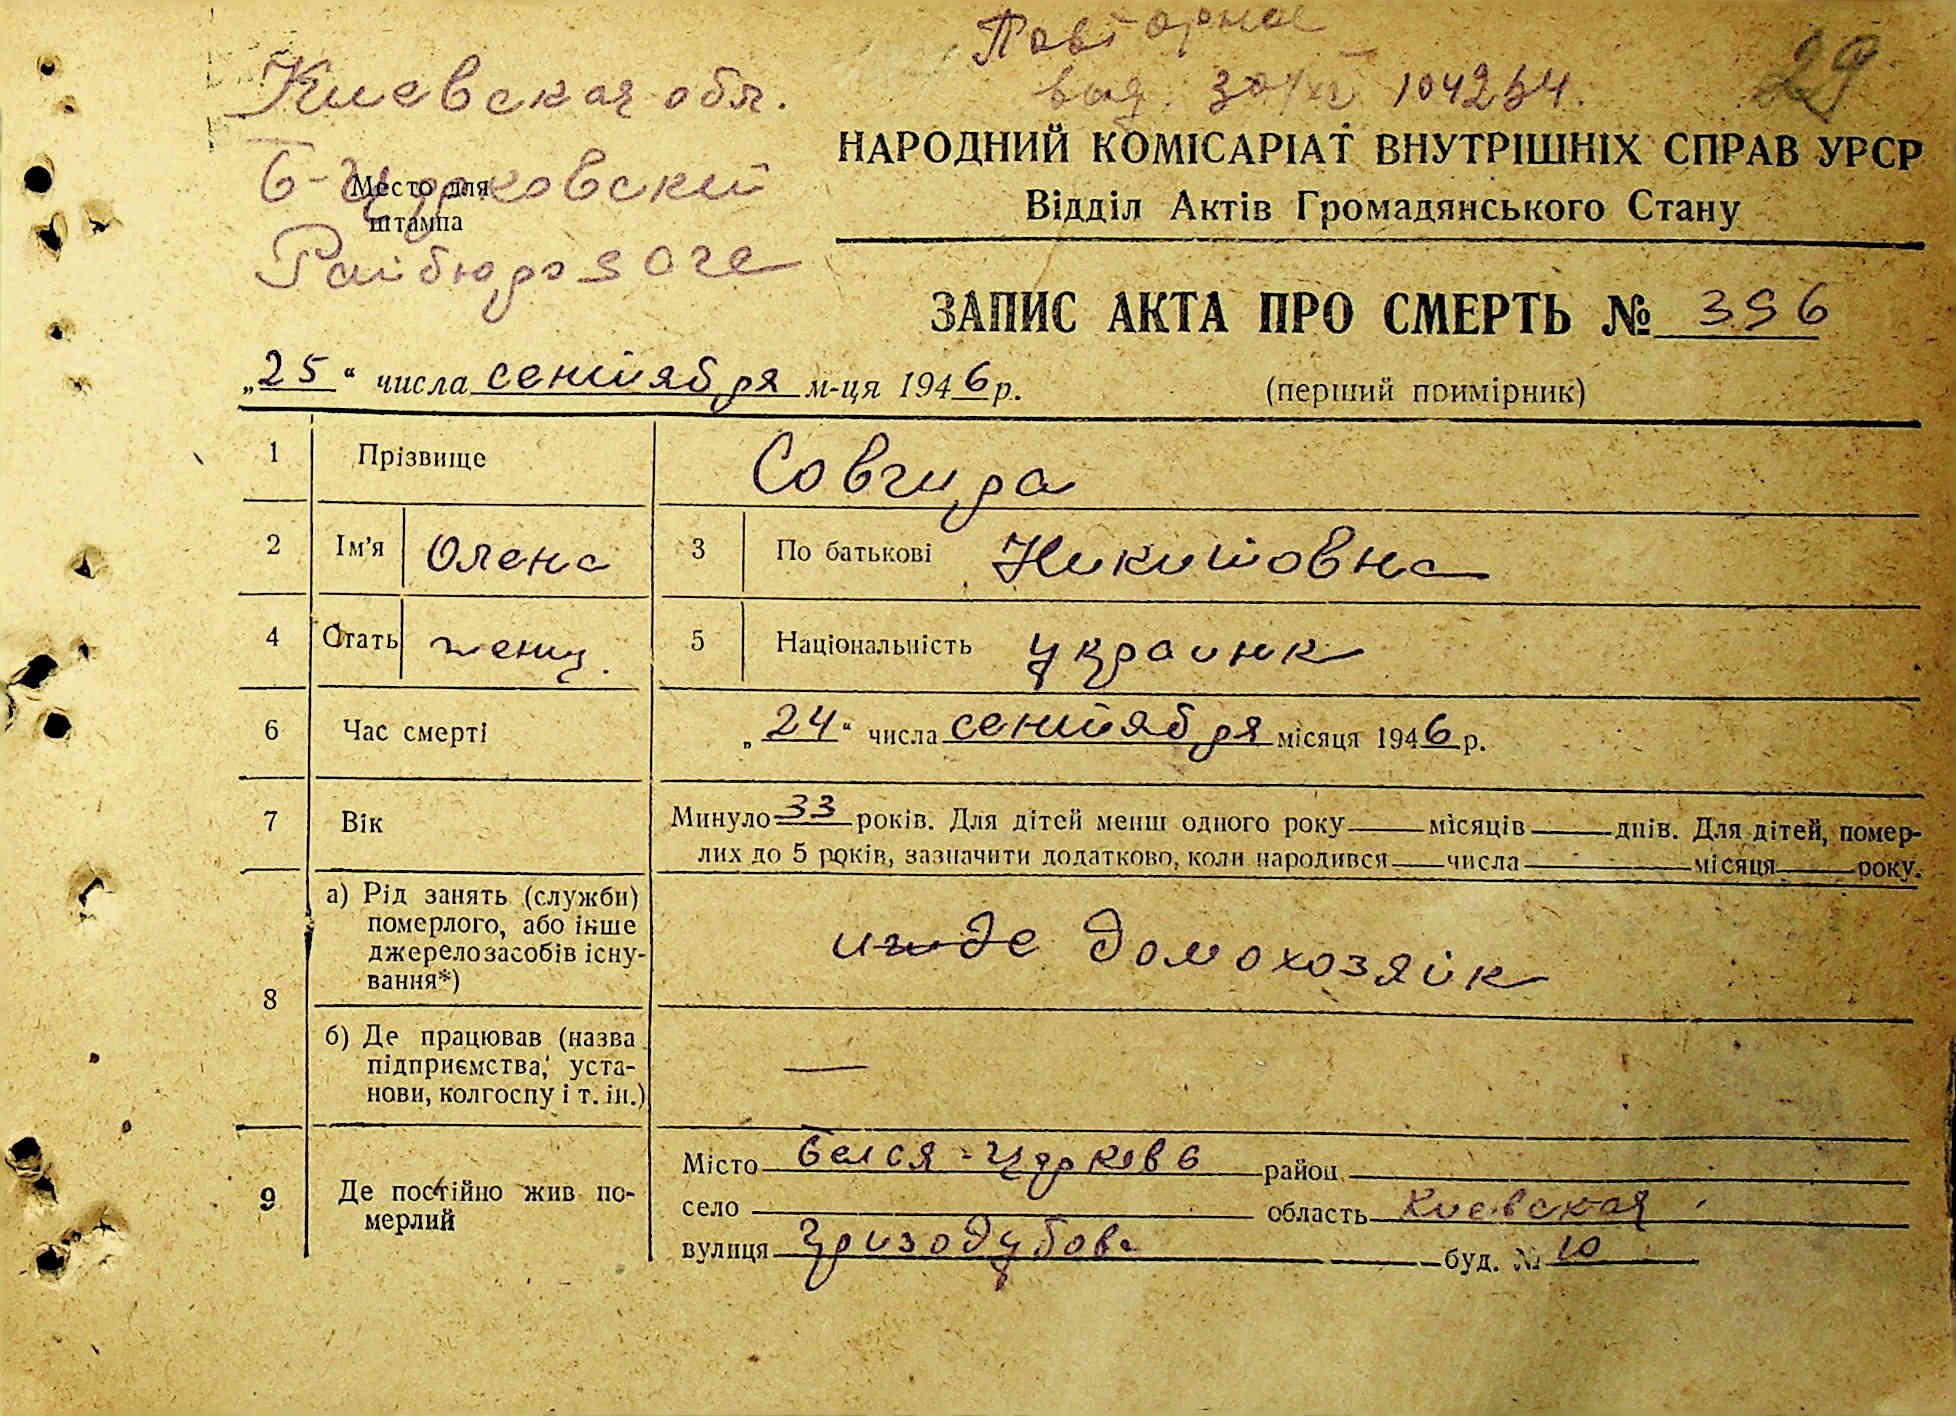 Повторное
выд. 30/XI 104254.
29
Киевская обл.
Б-Церковский
Райбюро ЗАГС
Место для
штампа
НАРОДНИЙ КОМІСАРІАТ ВНУТРІШНІХ СПРАВ УРСР
Відділ Актів Громадянського Стану
ЗАПИС АКТА ПРО СМЕРТЬ № 396
„25“ числа сентября м-ця 1946 р.
(перший примірник)
1 Прізвище Совгира
2 Ім'я Олена 3 По батькові Никитовна
4 Стать женщ. 5 Національність украинк
6 Час смерті „24“ числа сентября місяця 1946 р.
7 Вік Минуло 33 років. Для дітей менш одного року місяців днів. Для дітей, помер-
лих до 5 років, зазначити додатково, коли народився числа місяця року.
8 а) Рід занять (служби)
померлого, або інше
джерело засобів існу-
вання*)
домохозяйк
б) Де працював (назва
підприємства, уста-
нови, колгоспу і т. ін.)
—
9 Де постійно жив по-
мерлий
Місто Белая-Церковь район
село область Киевская
вулиця Гризодубова буд. № 10